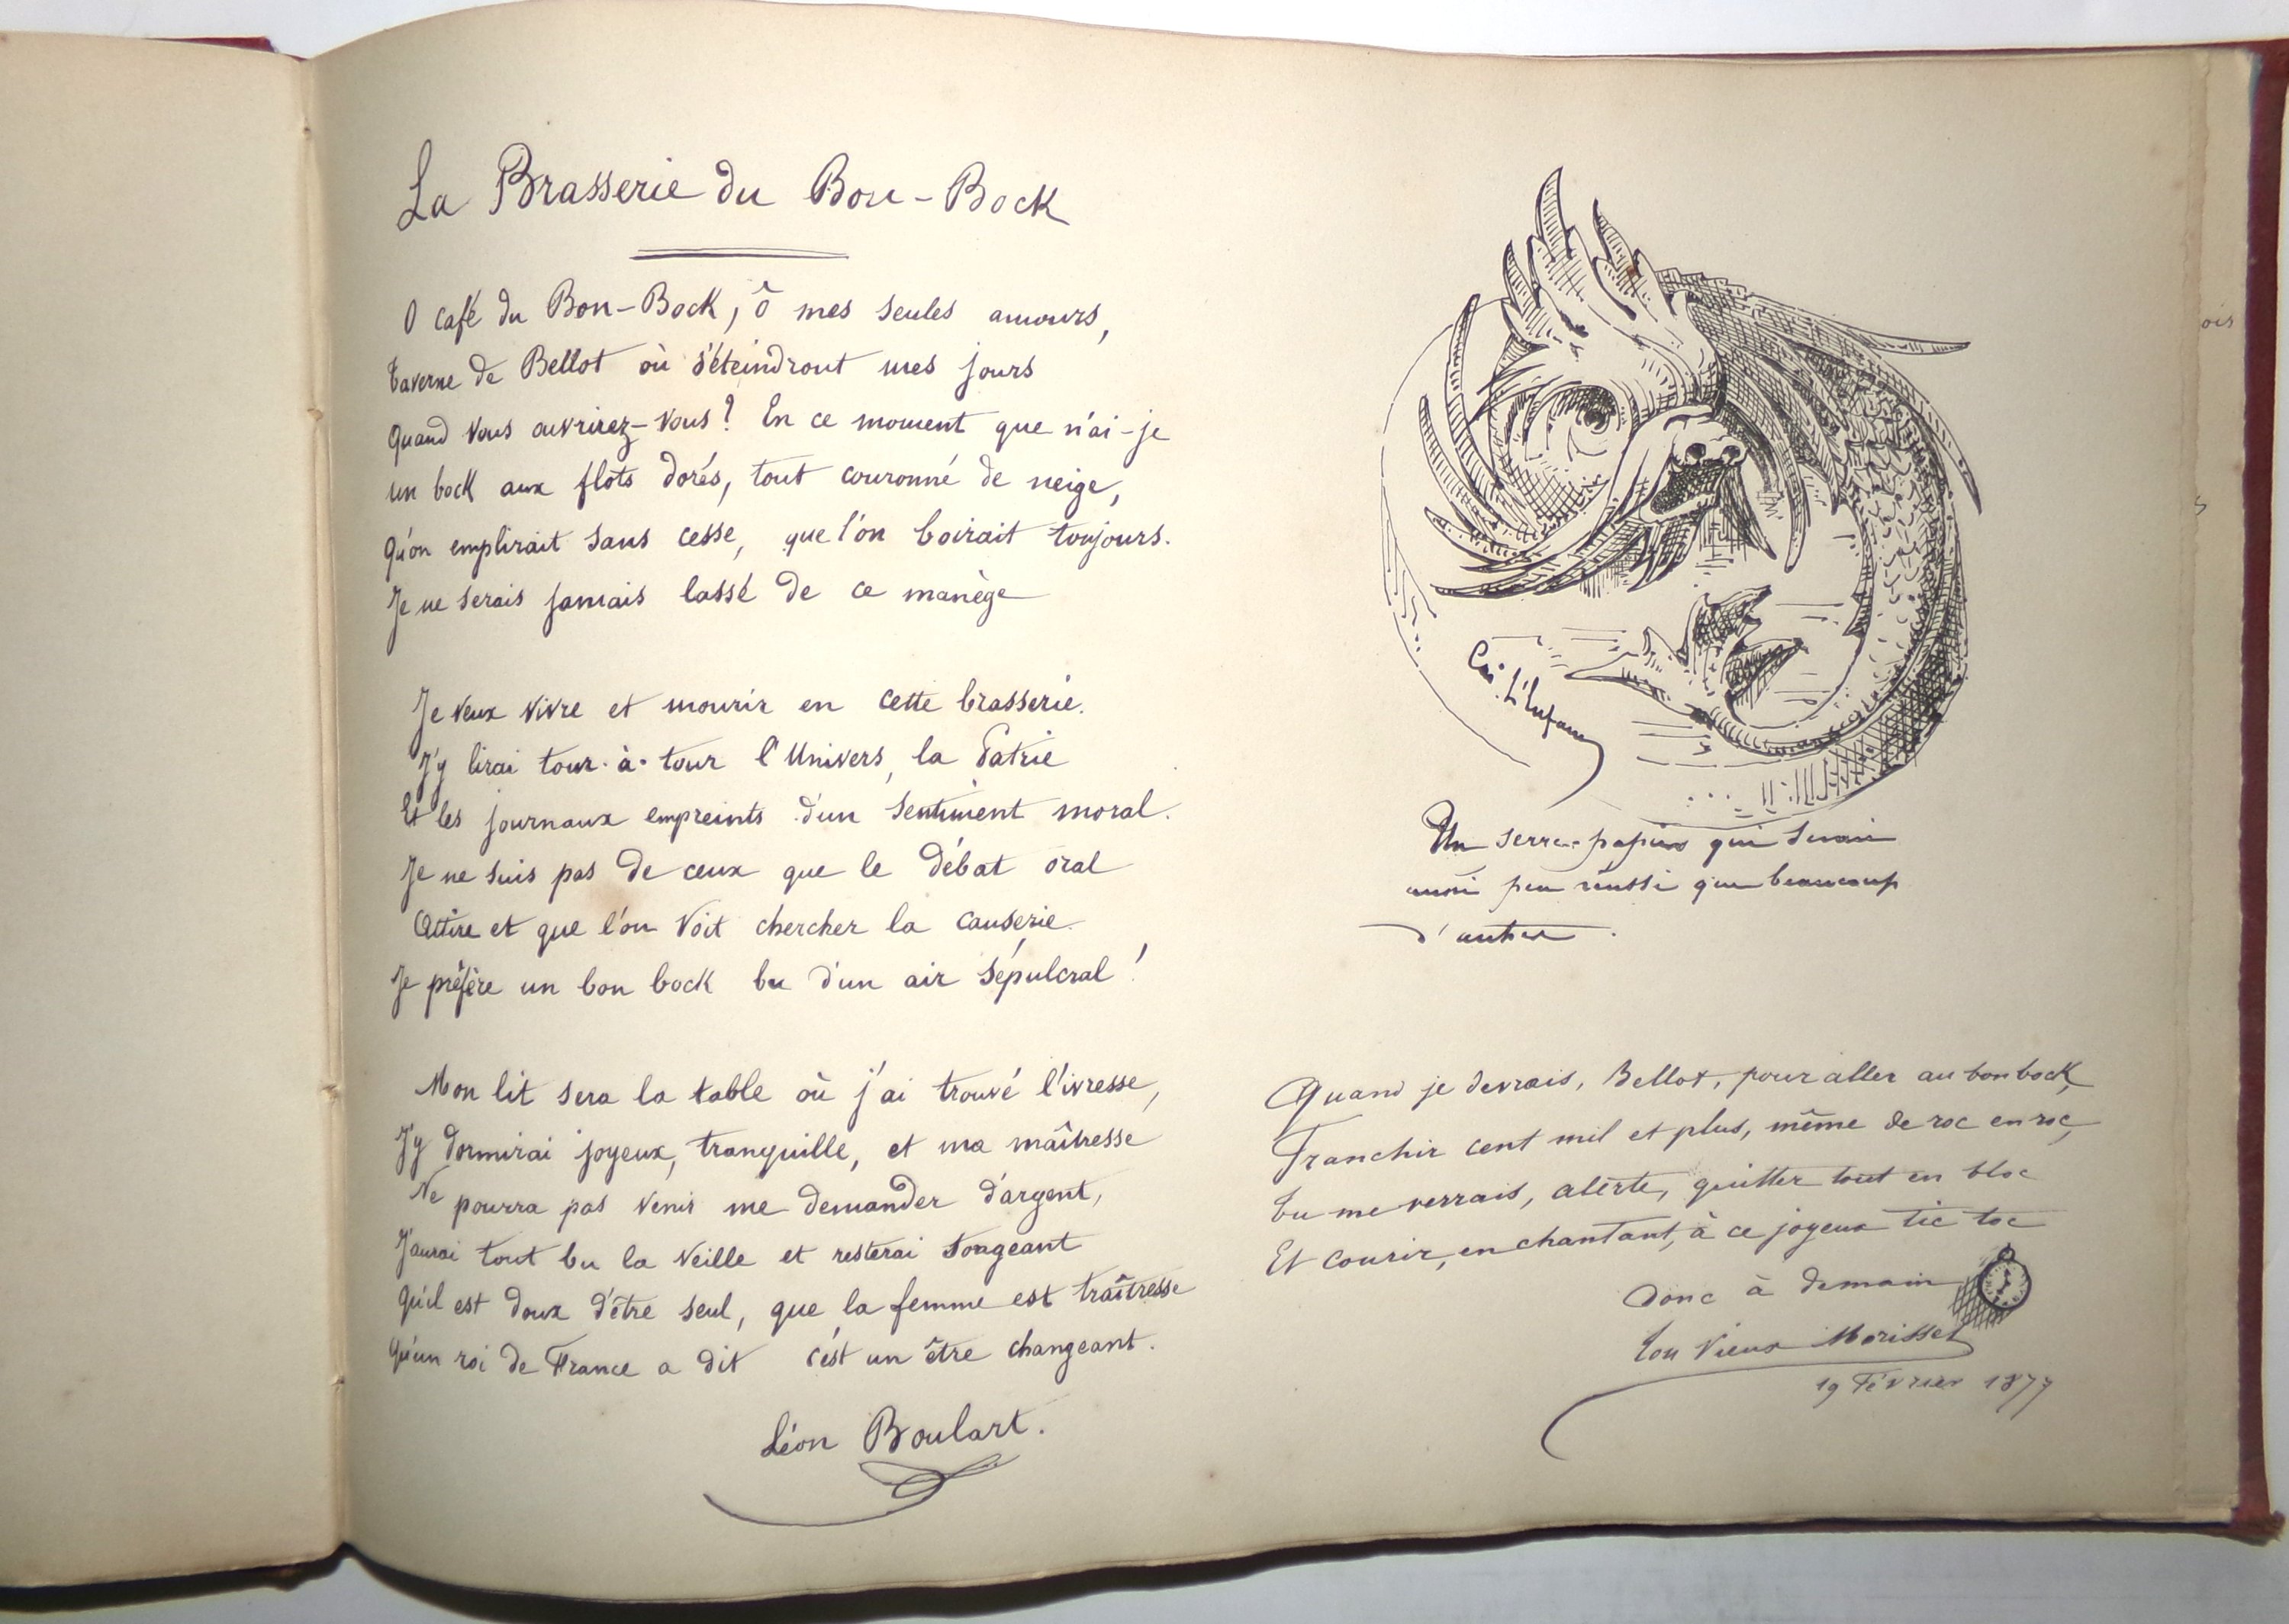 La Brasserie du Bon-Bock
O café du Bon-Bock, ô mes seules amours,
taverne de Bellot où s'éteindront mes jours
quand vous ouvrirez-vous? En ce moment que n'ai-je
un bock aux flots dorés, tout couronné de neige,
qu'on emplirait sans cesse, que l'on boirait toujours.
Je ne serais jamais lassé de ce manège
Je veux vivre et mourir en cette brasserie.
J'y lirai tour-à-tour l'Univers, la Patrie
Et les journaux empreints d'un sentiment moral.
Je ne suis pas de ceux que le débat oral
Attire et que l'on voit chercher la causerie.
Je préfère un bon bock bu d'un air sépulcral!
Mon lit sera la table où j'ai trouvé l'ivresse,
J'y dormirai joyeux, tranquille, et ma maîtresse
Ne pourra pas venir me demander d'argent,
J'aurai tout bu la veille et resterai songeant
Qu'il est doux d'être seul, que la femme est traîtresse
Qu'un roi de France a dit c'est un être changeant.
Léon Boulart.
Un serre-papiers qui
peu réussi que beaucoup
d'autres.
Quand je devrais, Bellot, pour aller au bon bock,
Franchir cent mil et plus, même de roc en roc,
Tu me verrais, alerte, quitter tout en bloc
Et courir, en chantant, à ce joyeux tic toc
Donc à demain
Ton vieux Morisset
19 Février 1877
ois
s